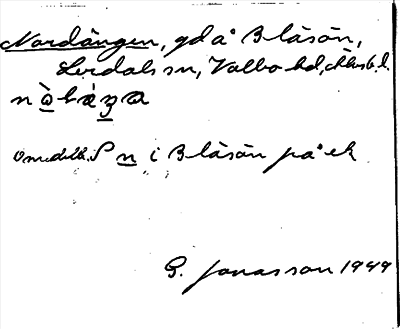 Nordängen, gd å Blåsön,
Lerdals sn, Valbo hd, Älvsb. l.
Omedelb. S n i Blåsön på ek
G. Jonasson 1949